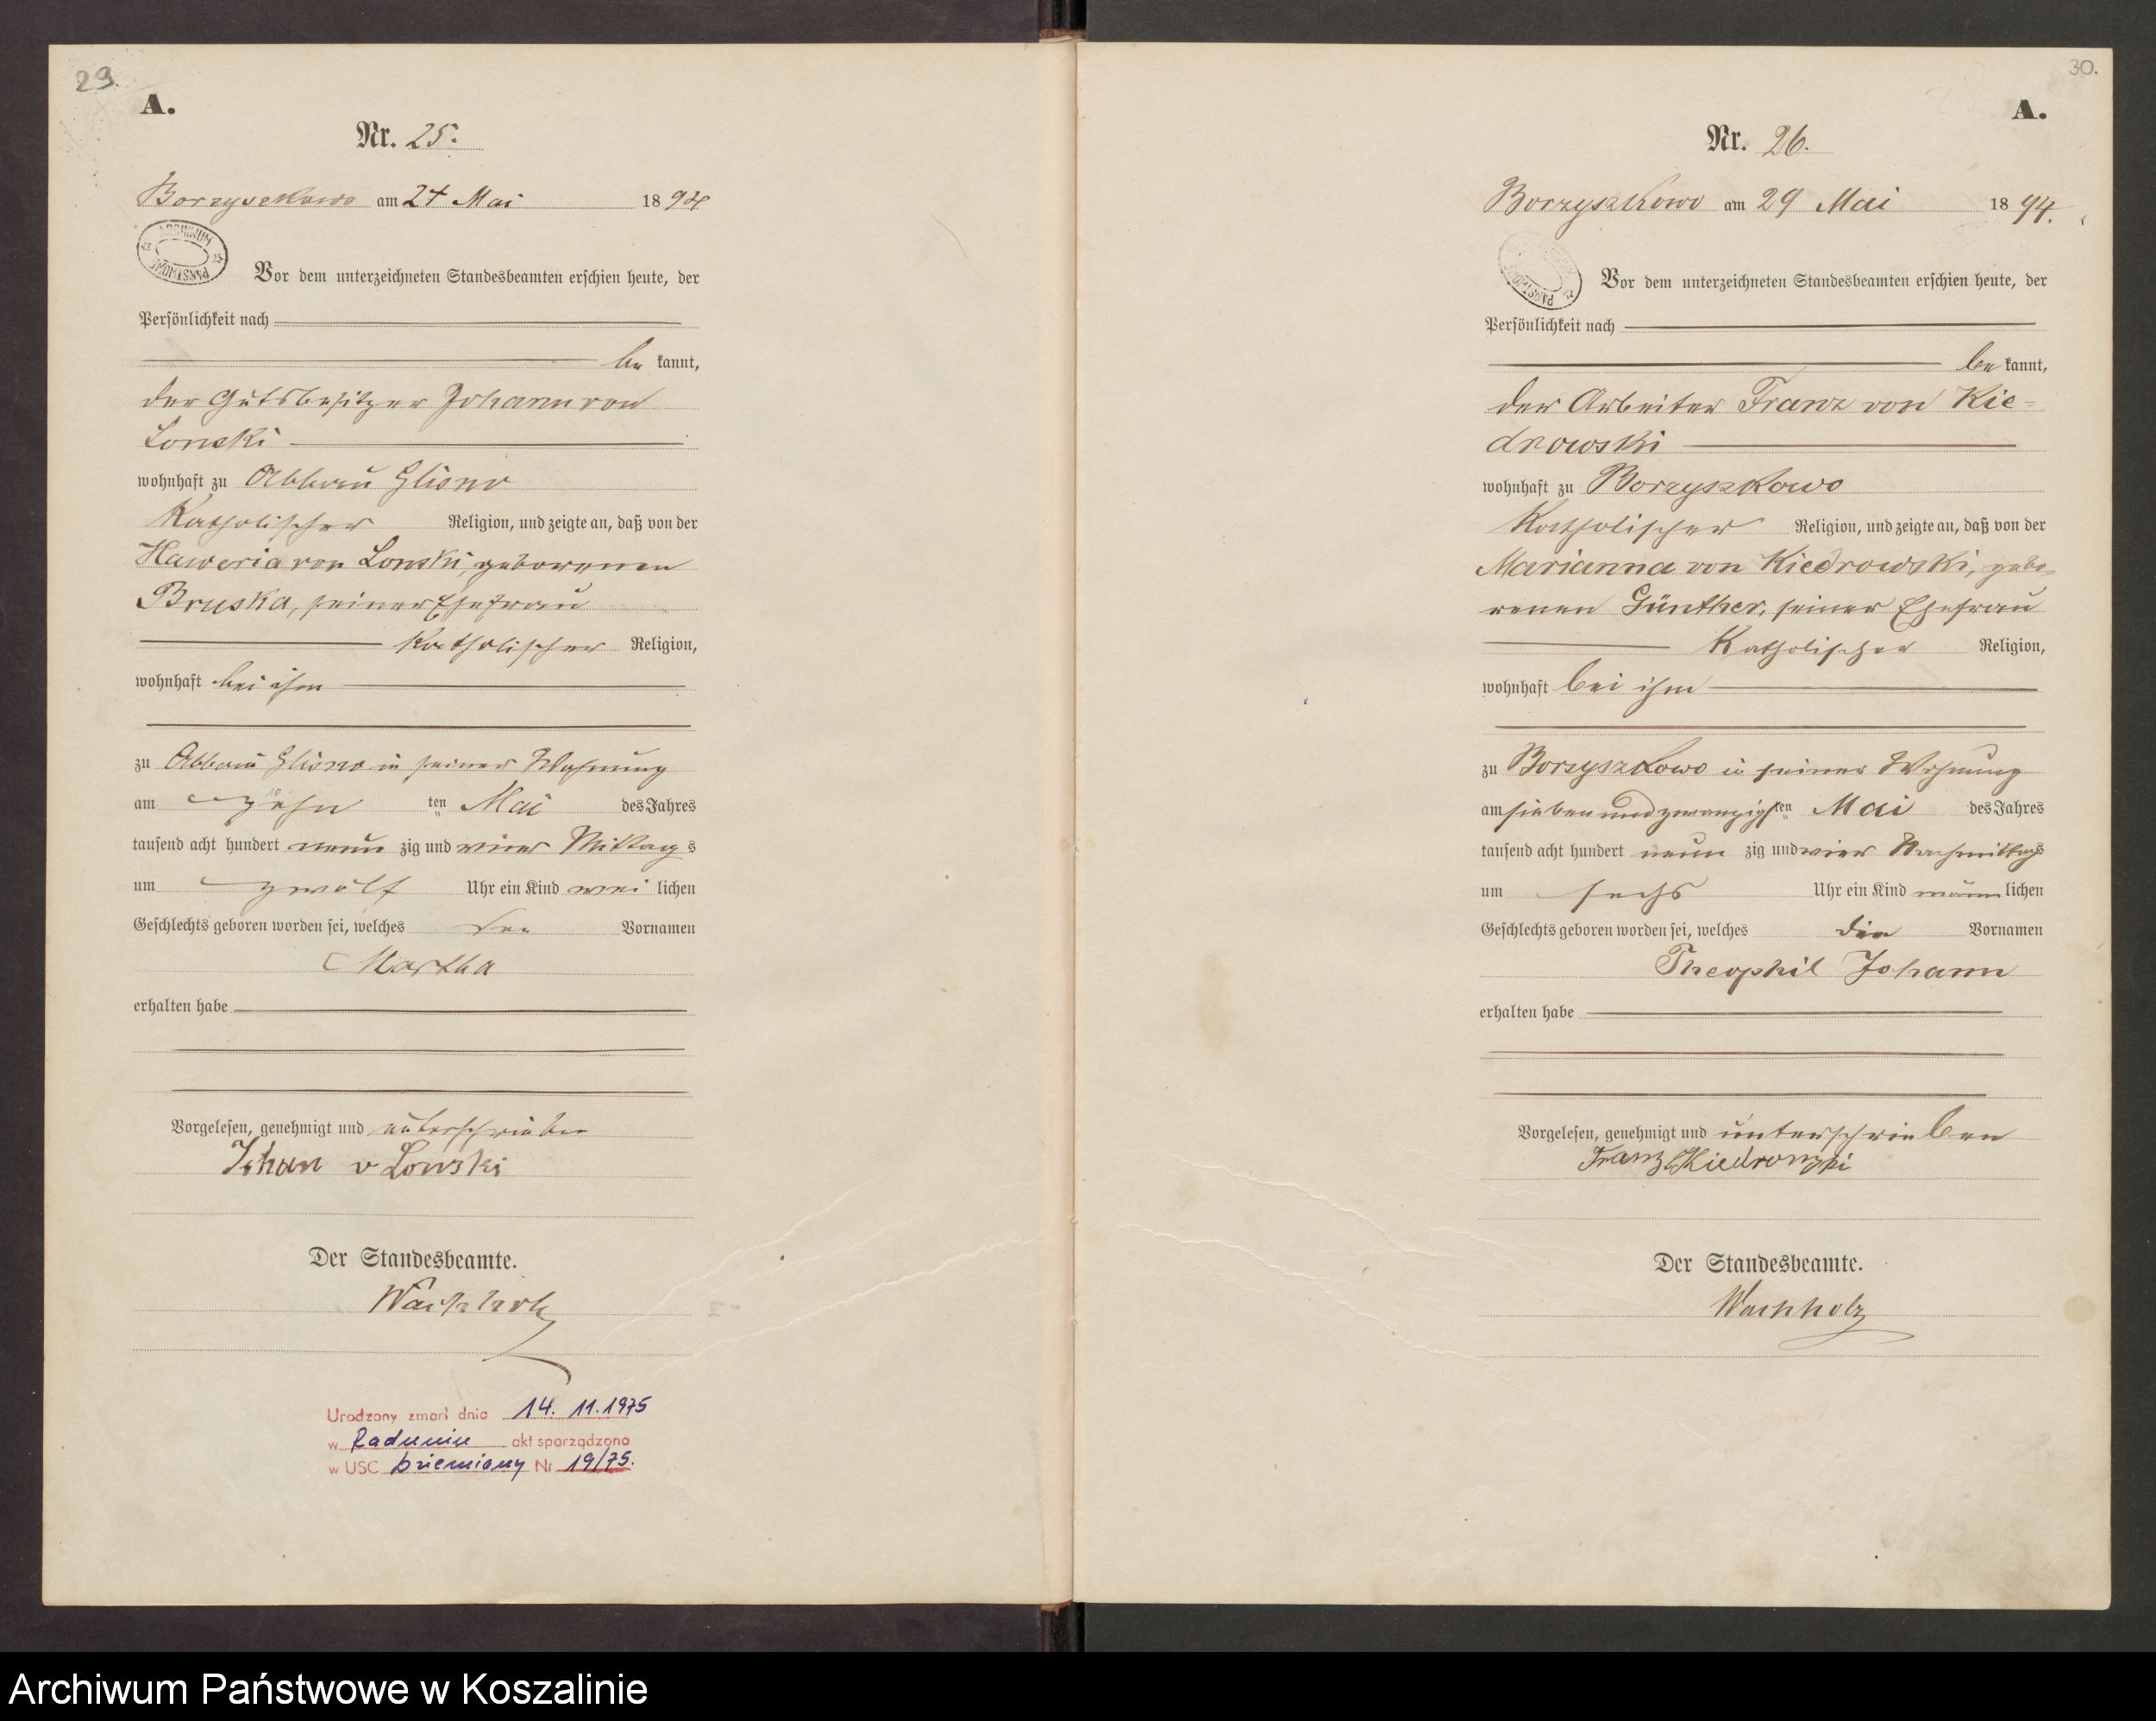 29.
A.
Nr. 25.
Borzyszkowo am 24 Mai 1894
ARCHIWUM PAŃSTWOWE
Vor dem unterzeichneten Standesbeamten erschien heute, der
Persönlichkeit nach
be kannt,
der Gutsbesitzer Johann von
Lonski
wohnhaft zu Abbau Glisno
Katholischer Religion, und zeigte an, daß von der
von Lonski, geborenen
Bruska, seiner Ehefrau
Katholischer Religion,
wohnhaft bei ihm
zu Abbau Glisno in seiner Wohnung
am zehn ten Mai des Jahres
tausend acht hundert neun zig und vier Mittag s
um zwölf Uhr ein Kind wei lichen
Geschlechts geboren worden sei, welches den Vornamen
Martha
erhalten habe
Vorgelesen, genehmigt und unterschrieben
Johan v Lonski
Der Standesbeamte.
Wachholz
Urodzony zmarł dnia 14. 11. 1975
w Raduniu akt sporządzono
w USC Dziemiany Nr 19/75.
30.
A.
Nr. 26.
Borzyszkowo am 29 Mai 1894.
Vor dem unterzeichneten Standesbeamten erschien heute, der
Persönlichkeit nach
be kannt,
der Arbeiter Franz von Kie-
drowski
wohnhaft zu Borzyszkowo
Katholischer Religion, und zeigte an, daß von der
Marianna von Kiedrowski, gebo-
renen Günther, seiner Ehefrau
Katholischer Religion,
wohnhaft bei ihm
zu Borzyszkowo in seiner Wohnung
am siebenundzwanzigsten Mai des Jahres
tausend acht hundert neun zig und vier Nachmittags
um sechs Uhr ein Kind männlichen
Geschlechts geboren worden sei, welches die Vornamen
Theophil Johann
erhalten habe
Vorgelesen, genehmigt und unterschrieben
Franz Kiedrowski
Der Standesbeamte.
Wachholz
Archiwum Państwowe w Koszalinie